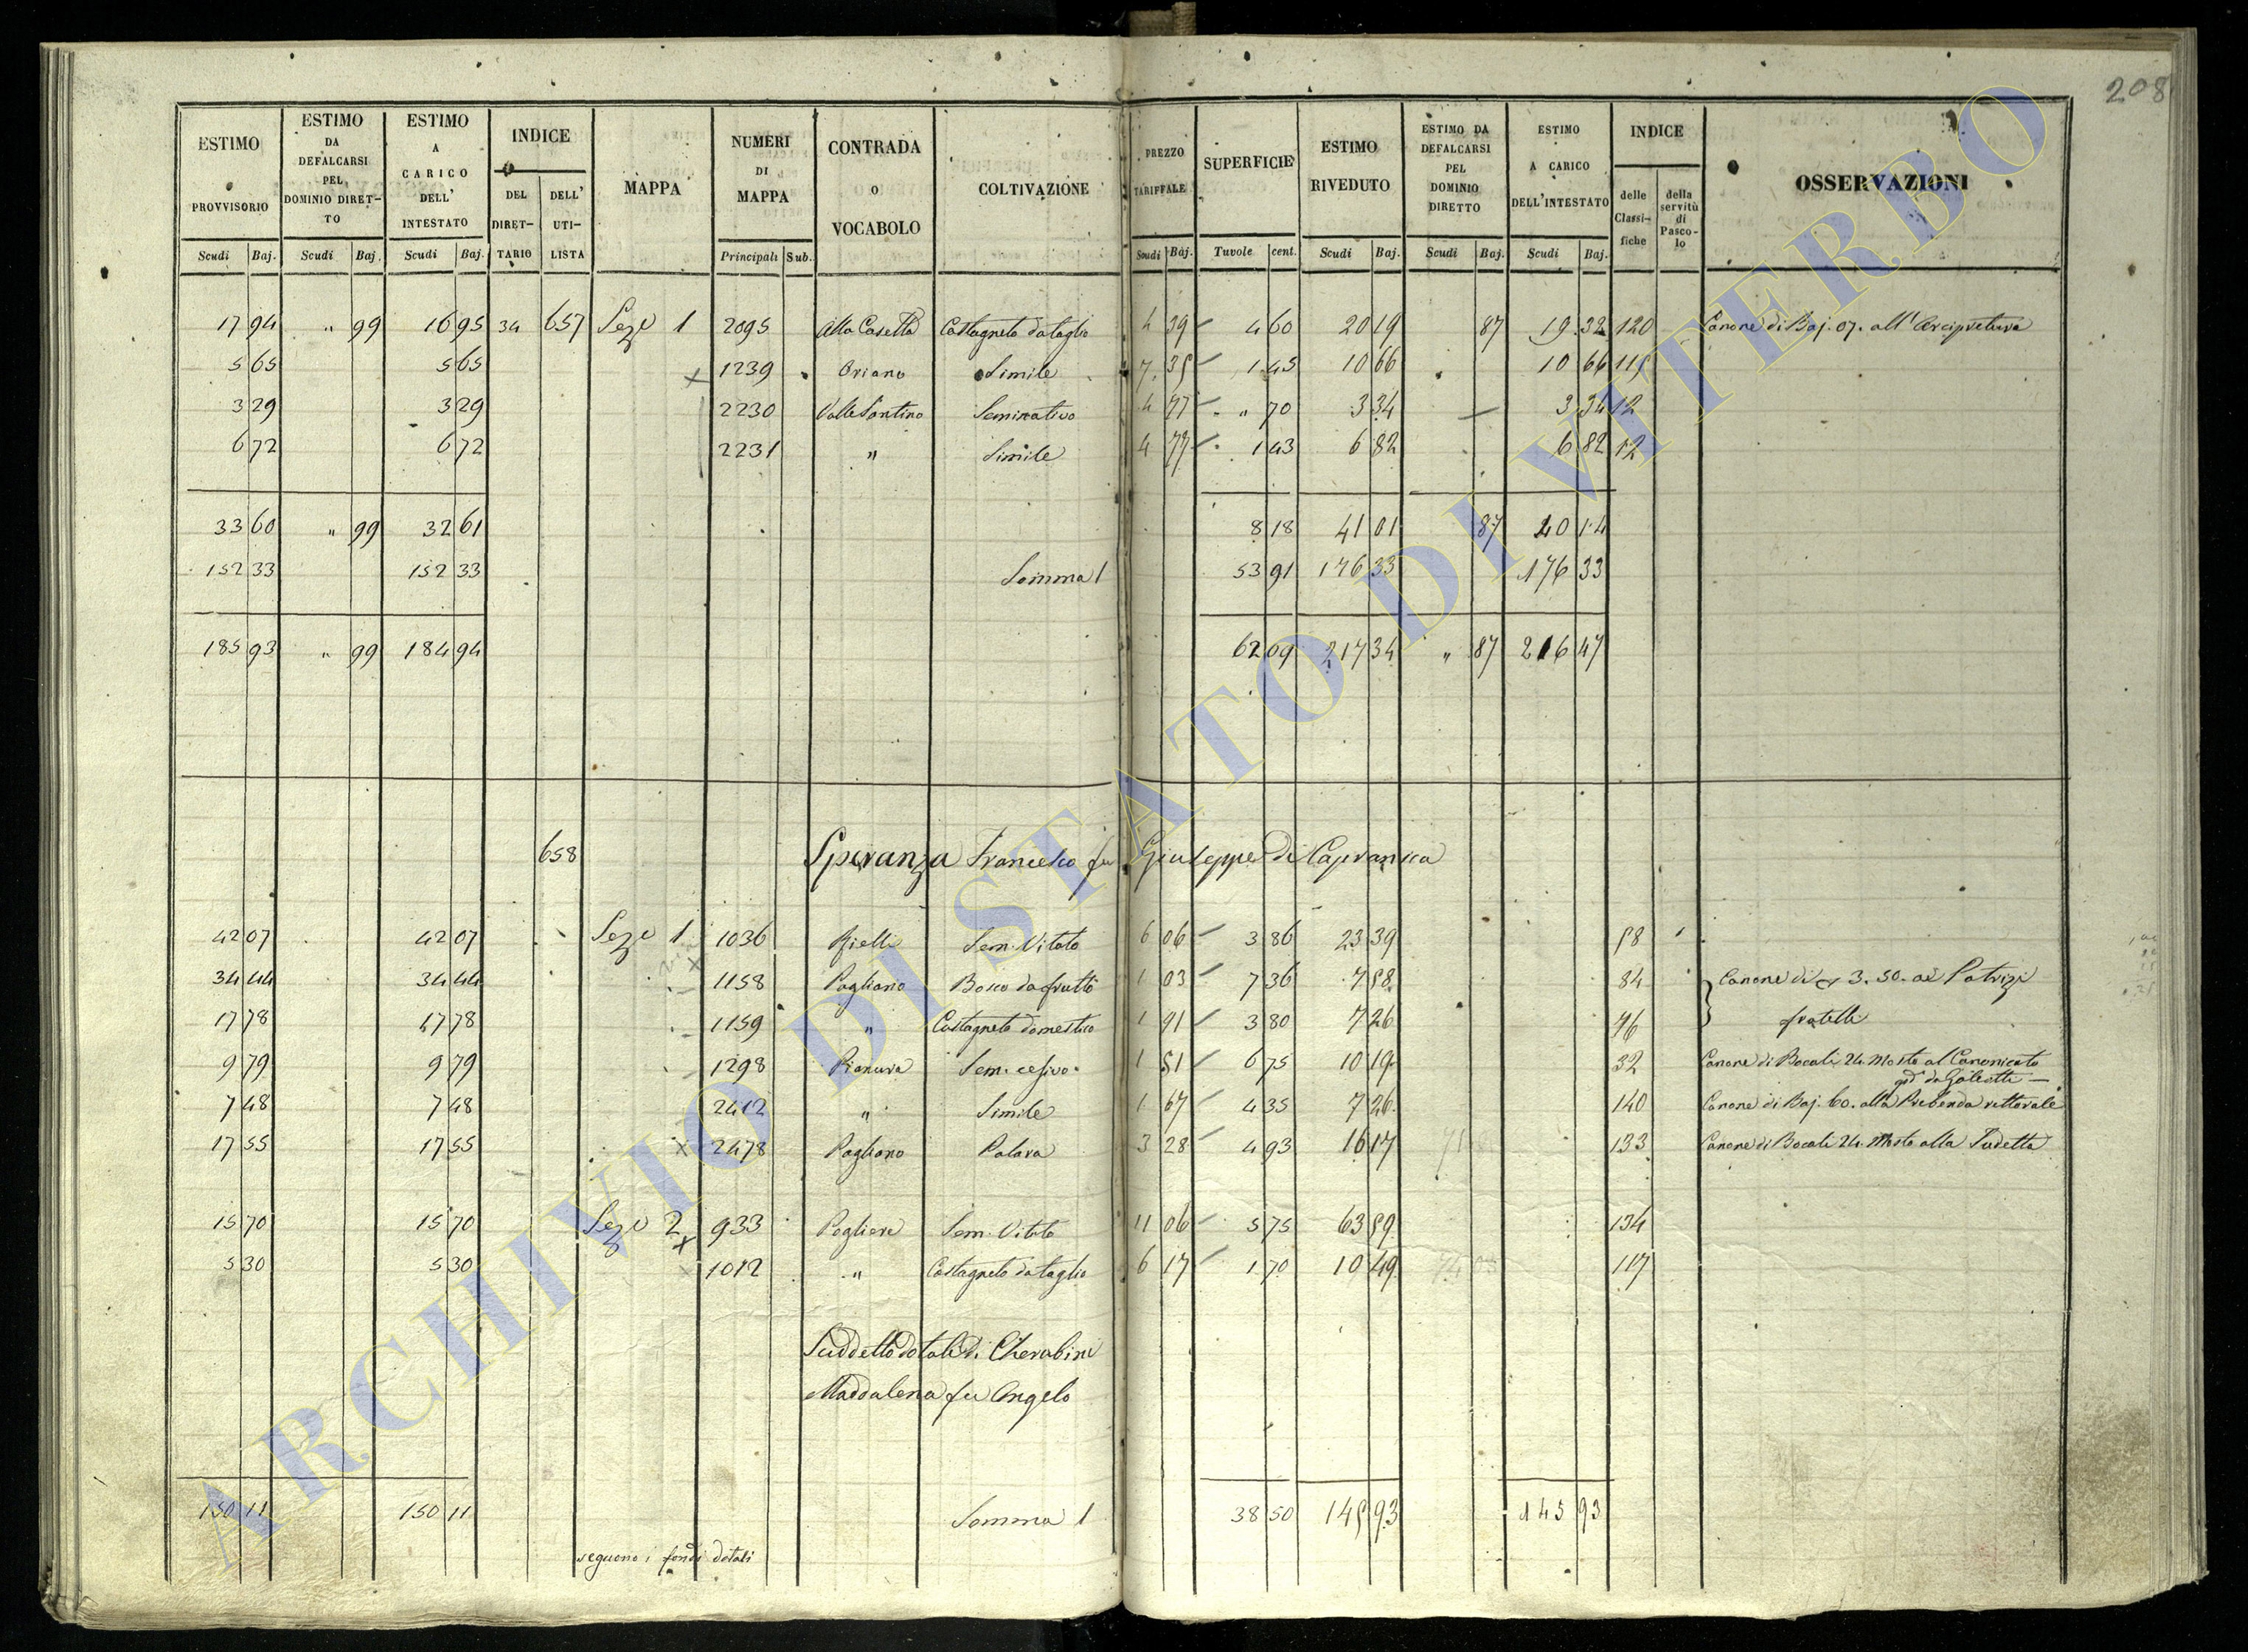 208
ESTIMO PROVVISORIO | ESTIMO DA DEFALCARSI PEL DOMINIO DIRET-TO | ESTIMO A CARICO DELL' INTESTATO | INDICE DEL DIRET-TARIO | DELL' UTI-LISTA | MAPPA | NUMERI DI MAPPA | CONTRADA O VOCABOLO | COLTIVAZIONE | PREZZO TARIFFALE | SUPERFICIE | ESTIMO RIVEDUTO | ESTIMO DA DEFALCARSI PEL DOMINIO DIRETTO | ESTIMO A CARICO DELL'INTESTATO | INDICE delle Classi-fiche | della servitù di Pasco-lo | OSSERVAZIONI
Scudi Baj. | Scudi Baj. | Scudi Baj. | Principali Sub. | Scudi Baj. | Tavole cent. | Scudi Baj. | Scudi Baj. | Scudi Baj.
17 94 " 99 16 95 34 657 Seze 1 2095 Alla Casetta Castagneto da taglio 4 39 4 60 20 19 87 19 32 120 Canone di Baj. 07. all'Arcipretura
5 65 5 65 1239 Oriano Simile 7 35 1 45 10 66 10 66 115
3 29 3 29 2230 Valle Santino Seminativo 4 77 " 70 3 34 3 34 12
6 72 6 72 2231 " Simile 4 77 1 43 6 82 6 82 12
33 60 " 99 32 61 8 18 41 01 87 40 14
152 33 152 33 Somma 1 53 91 176 33 176 33
185 93 " 99 184 94 62 09 217 34 " 87 216 47
658 Speranza Francesco fu Giuseppe di Capranica
42 07 42 07 Seze 1 1036 Sem. Vitato 6 06 3 86 23 39 58
34 44 34 44 1158 Pogliano Bosco da frutto 1 03 7 36 7 58 84 Canone di 3.50. ai Patrizi
17 78 17 78 1159 " Castagneto domestico 1 91 3 80 7 26 96 fratelli
9 79 9 79 1298 Pianura Sem. cesivo 1 51 6 75 10 19 32 Canone di Bocali 24. Mosto al Canonicato
god. da Galeotti
7 48 7 48 2412 " Simile 1 67 4 35 7 26 140 Canone di Baj. 60. alla Prebenda rettorale
17 55 17 55 2478 Pogliano Palara 3 28 4 93 16 17 133 Canone di Bocali 24. Mosto alla Sudetta
15 70 15 70 Seze 2 933 Pogliere Sem. Vitato 11 06 5 75 63 59 134
5 30 5 30 1012 " Castagneto da taglio 6 17 1 70 10 49 117
Suddetto dotali di Cherubini
Maddalena fu Angelo
150 11 150 11 Somma 1 38 50 145 93 145 93
seguono i fondi dotali
ARCHIVIO DI STATO DI VITERBO